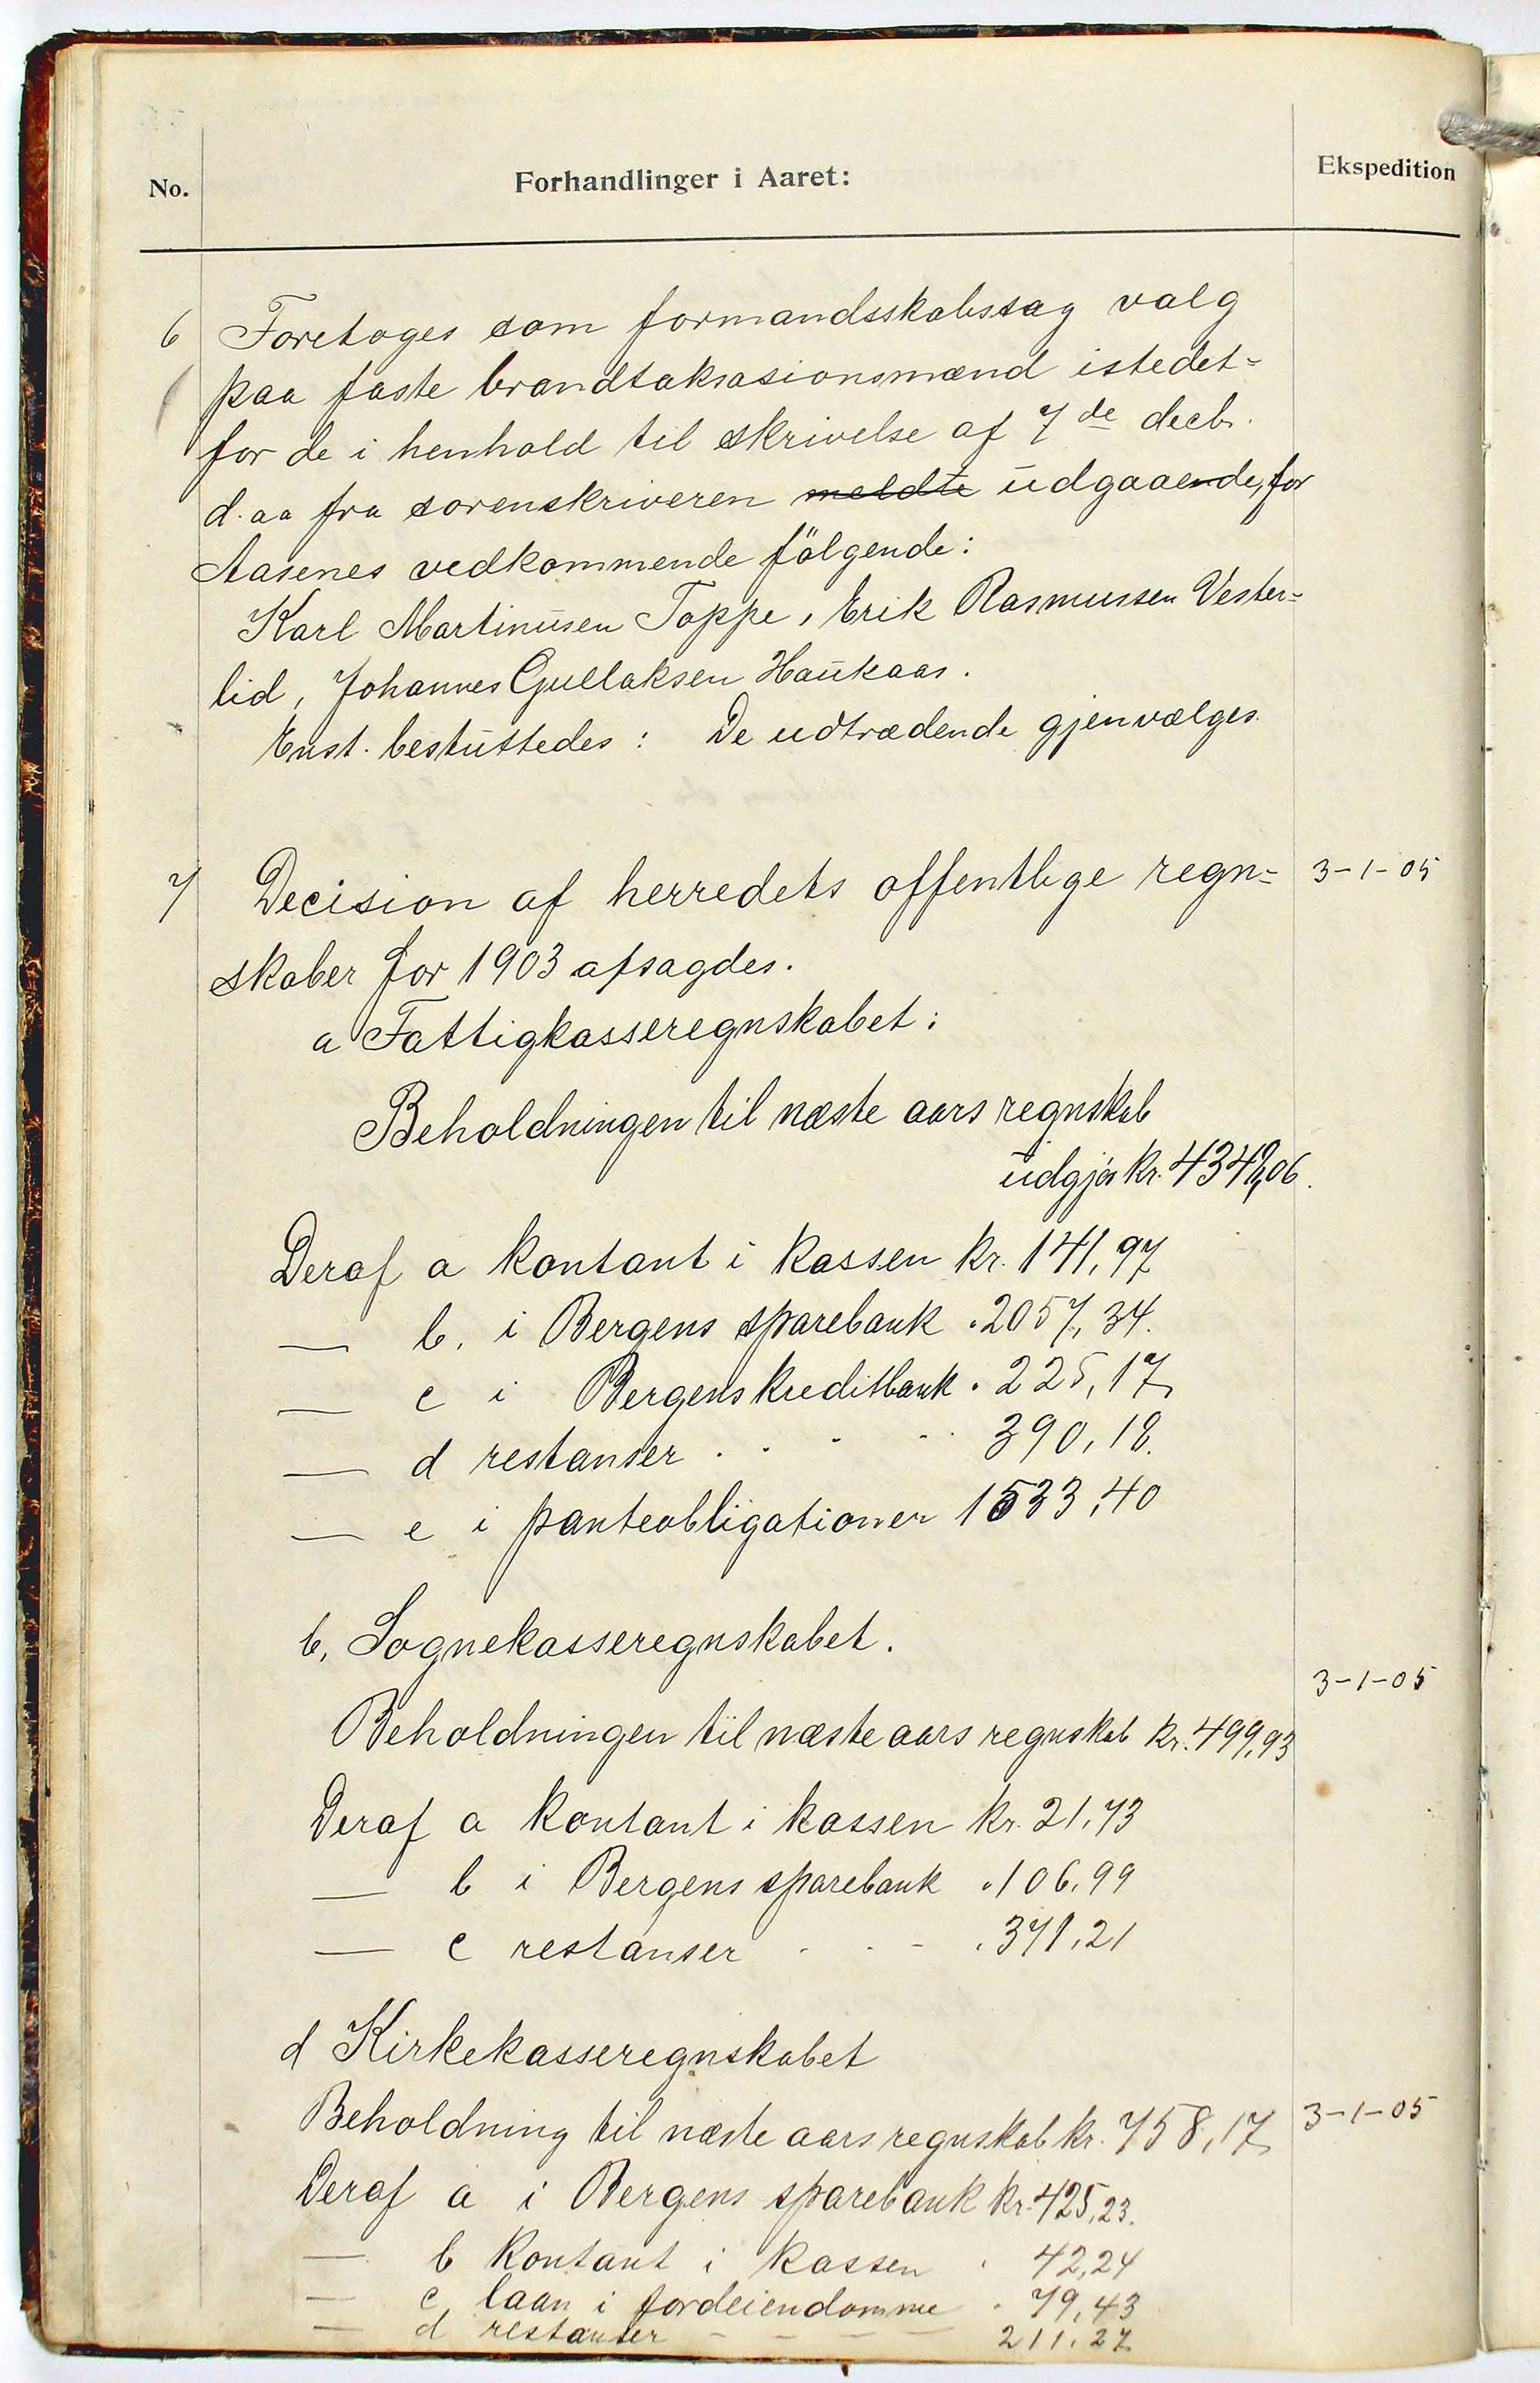 No.
Forhandlinger i Aaret:
Ekspedition
6 Foretoges som formandsskabssag valg
paa faste brandtaksasionsmænd istedet=
for de i henhold til skrivelse af 7de decbr.
d. aa fra sorenskriveren meldte udgaaende, for
Aasenes vedkommende følgende:
Karl Martinusen Toppe, Erik Rasmussen Vester=
lid, Johannes Gullaksen Haukaas.
Enst. besluttedes: De udtrædende gjenvælges.
7 Decision af herredets offentlige regn= 3-1-05
skaber for 1903 afsagdes.
a Fattigkasseregnskabet:
Beholdningen til næste aars regnskab
udgjør kr. 4348,06.
Deraf a kontant i kassen kr. 141,97
— b. i Bergens sparebank " 2057,34.
— c i Bergens kreditbank " 225,17
— d restanser . . . . 390,18.
— e i panteobligationer 1533,40
b, Sognekasseregnskabet.
3-1-05
Beholdningen til næste aars regnskab kr. 499,93
Deraf a kontant i kassen kr. 21,73
— b i Bergens sparebank " 106,99
— c restanser . . - " 371,21
d Kirkekasseregnskabet
Beholdning til næste aars regnskab kr. 758,17 3-1-05
Deraf a i Bergens sparebank kr. 425,23.
— b kontant i kassen " 42,24
— c, laan i fordeiendomme " 79,43
— d restanser - - - — 211,27